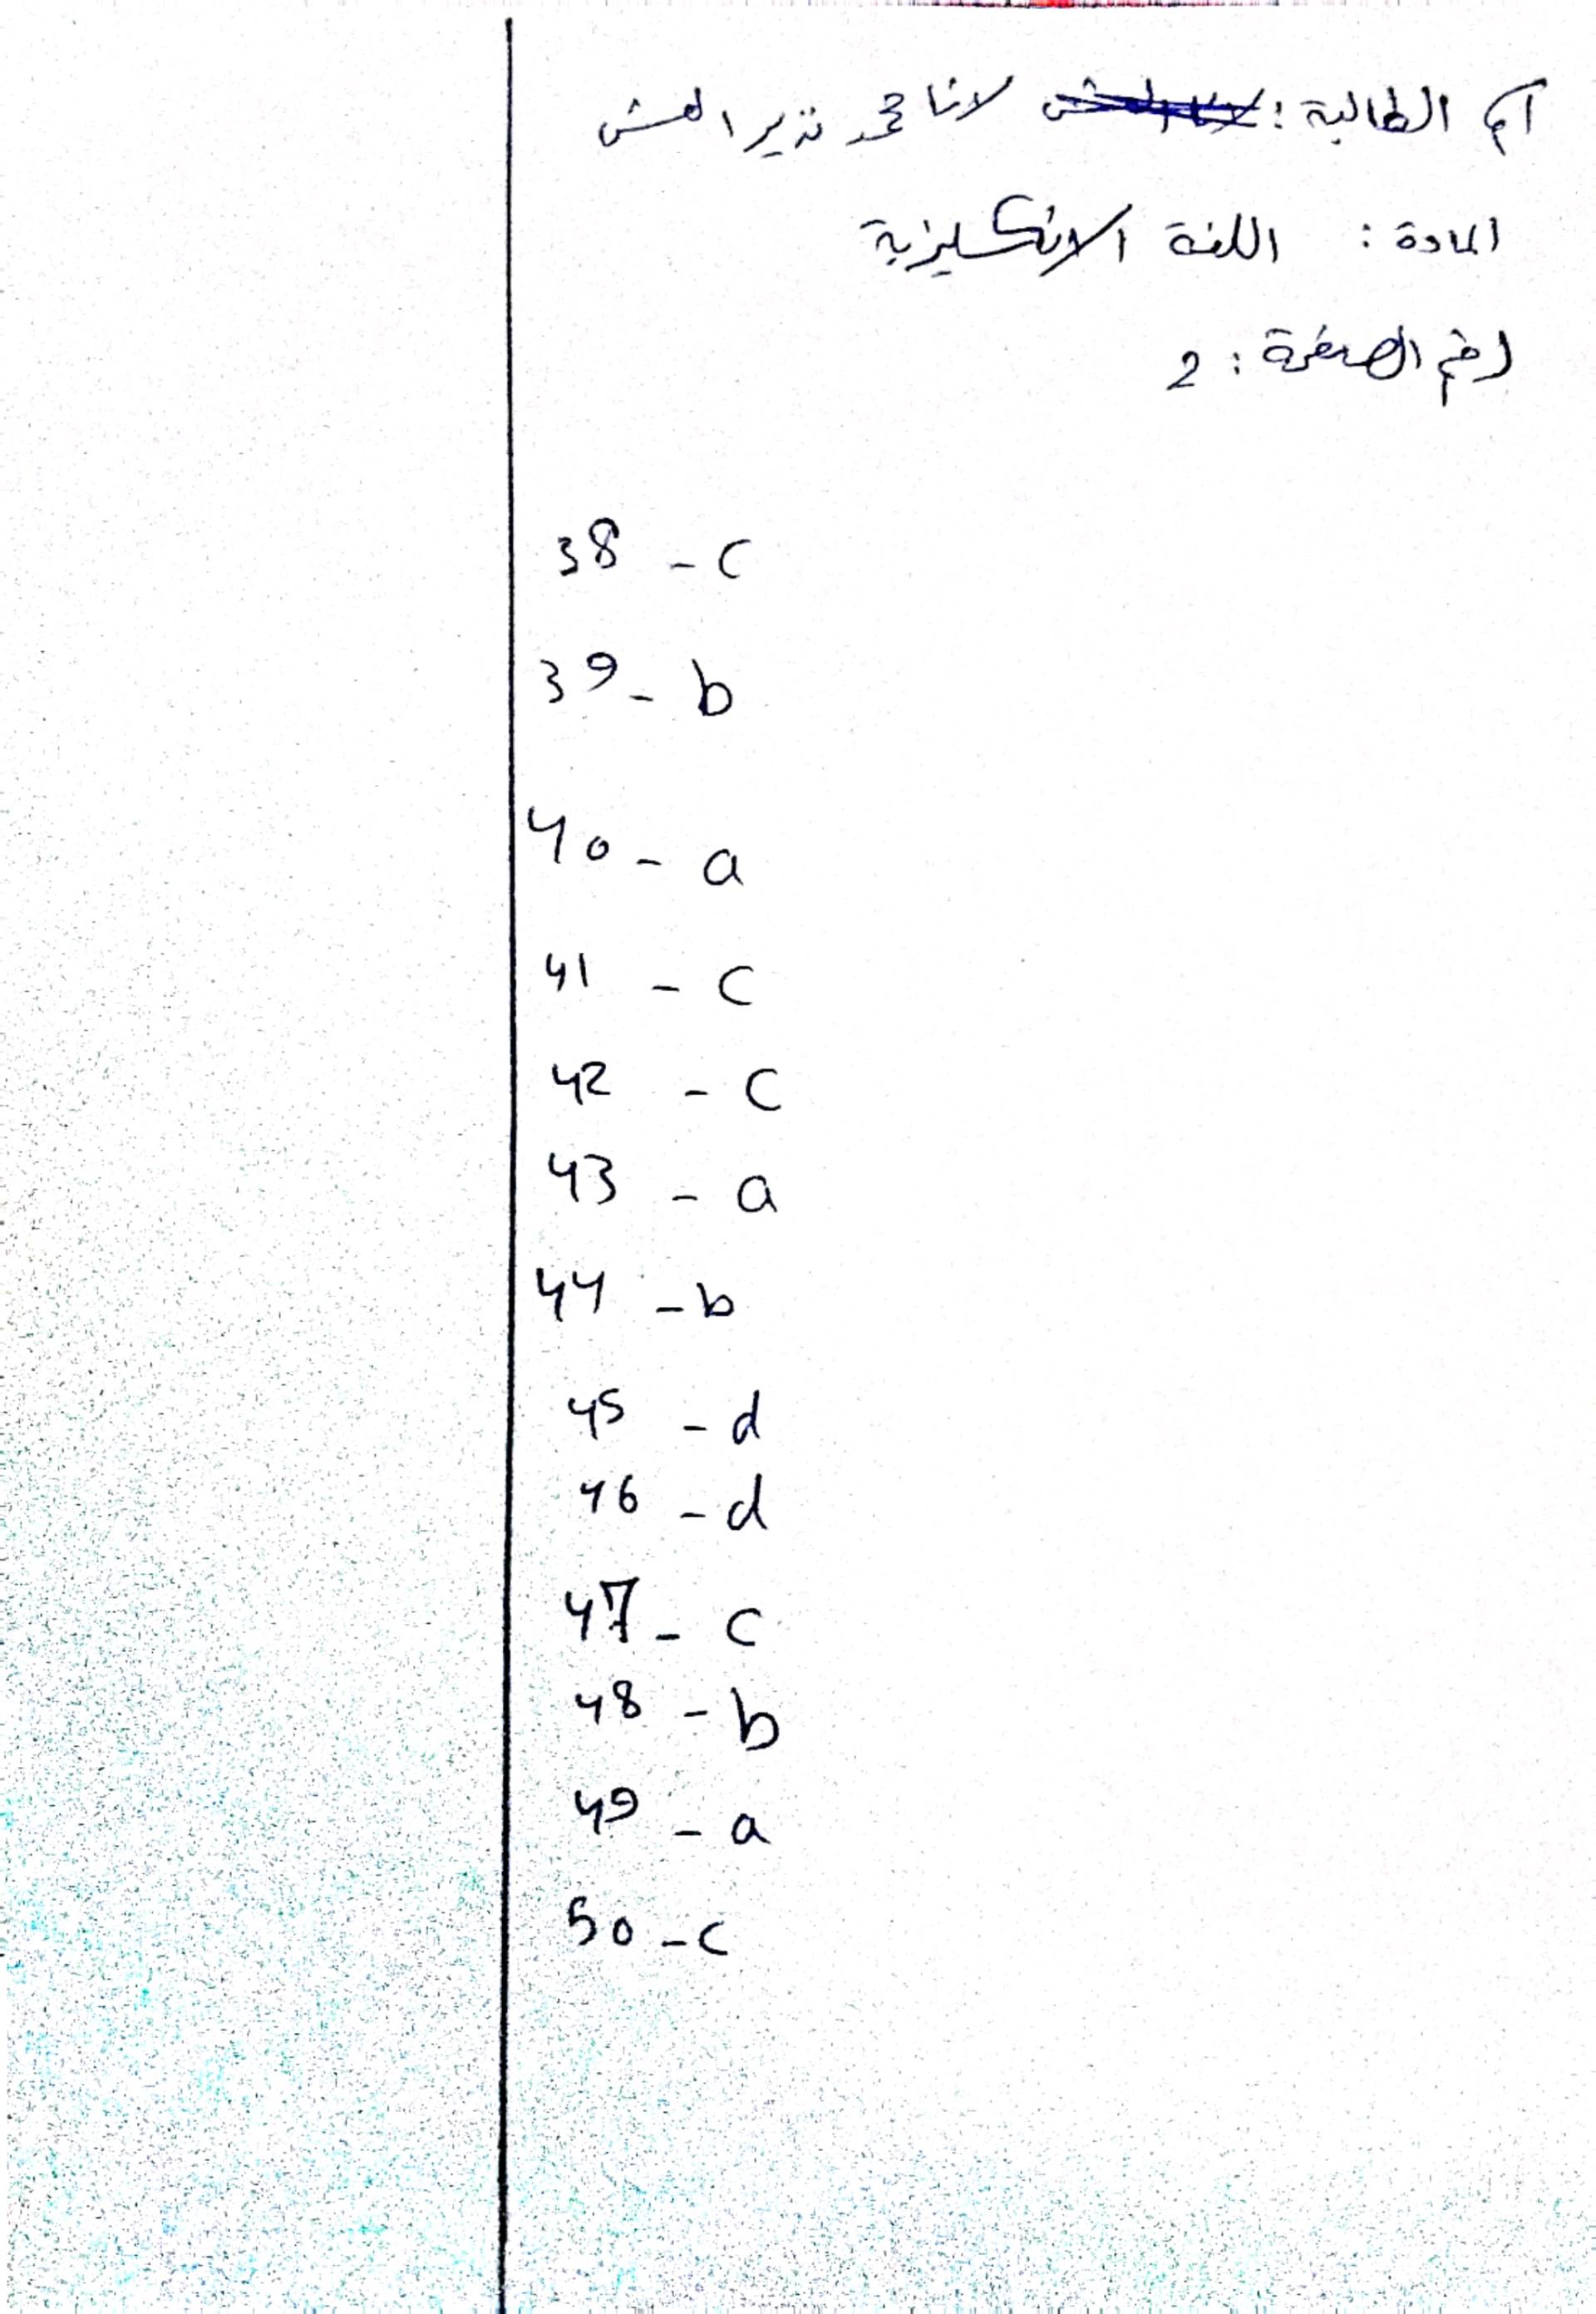 اسم الطالبة: لانا محمد نذير العش
المادة: اللغة الانكليزية
رقم الصفحة: 2
38 - c
39 - b
40 - a
41 - c
42 - c
43 - a
44 - b
45 - d
46 - d
47 - c
48 - b
49 - a
50 - c